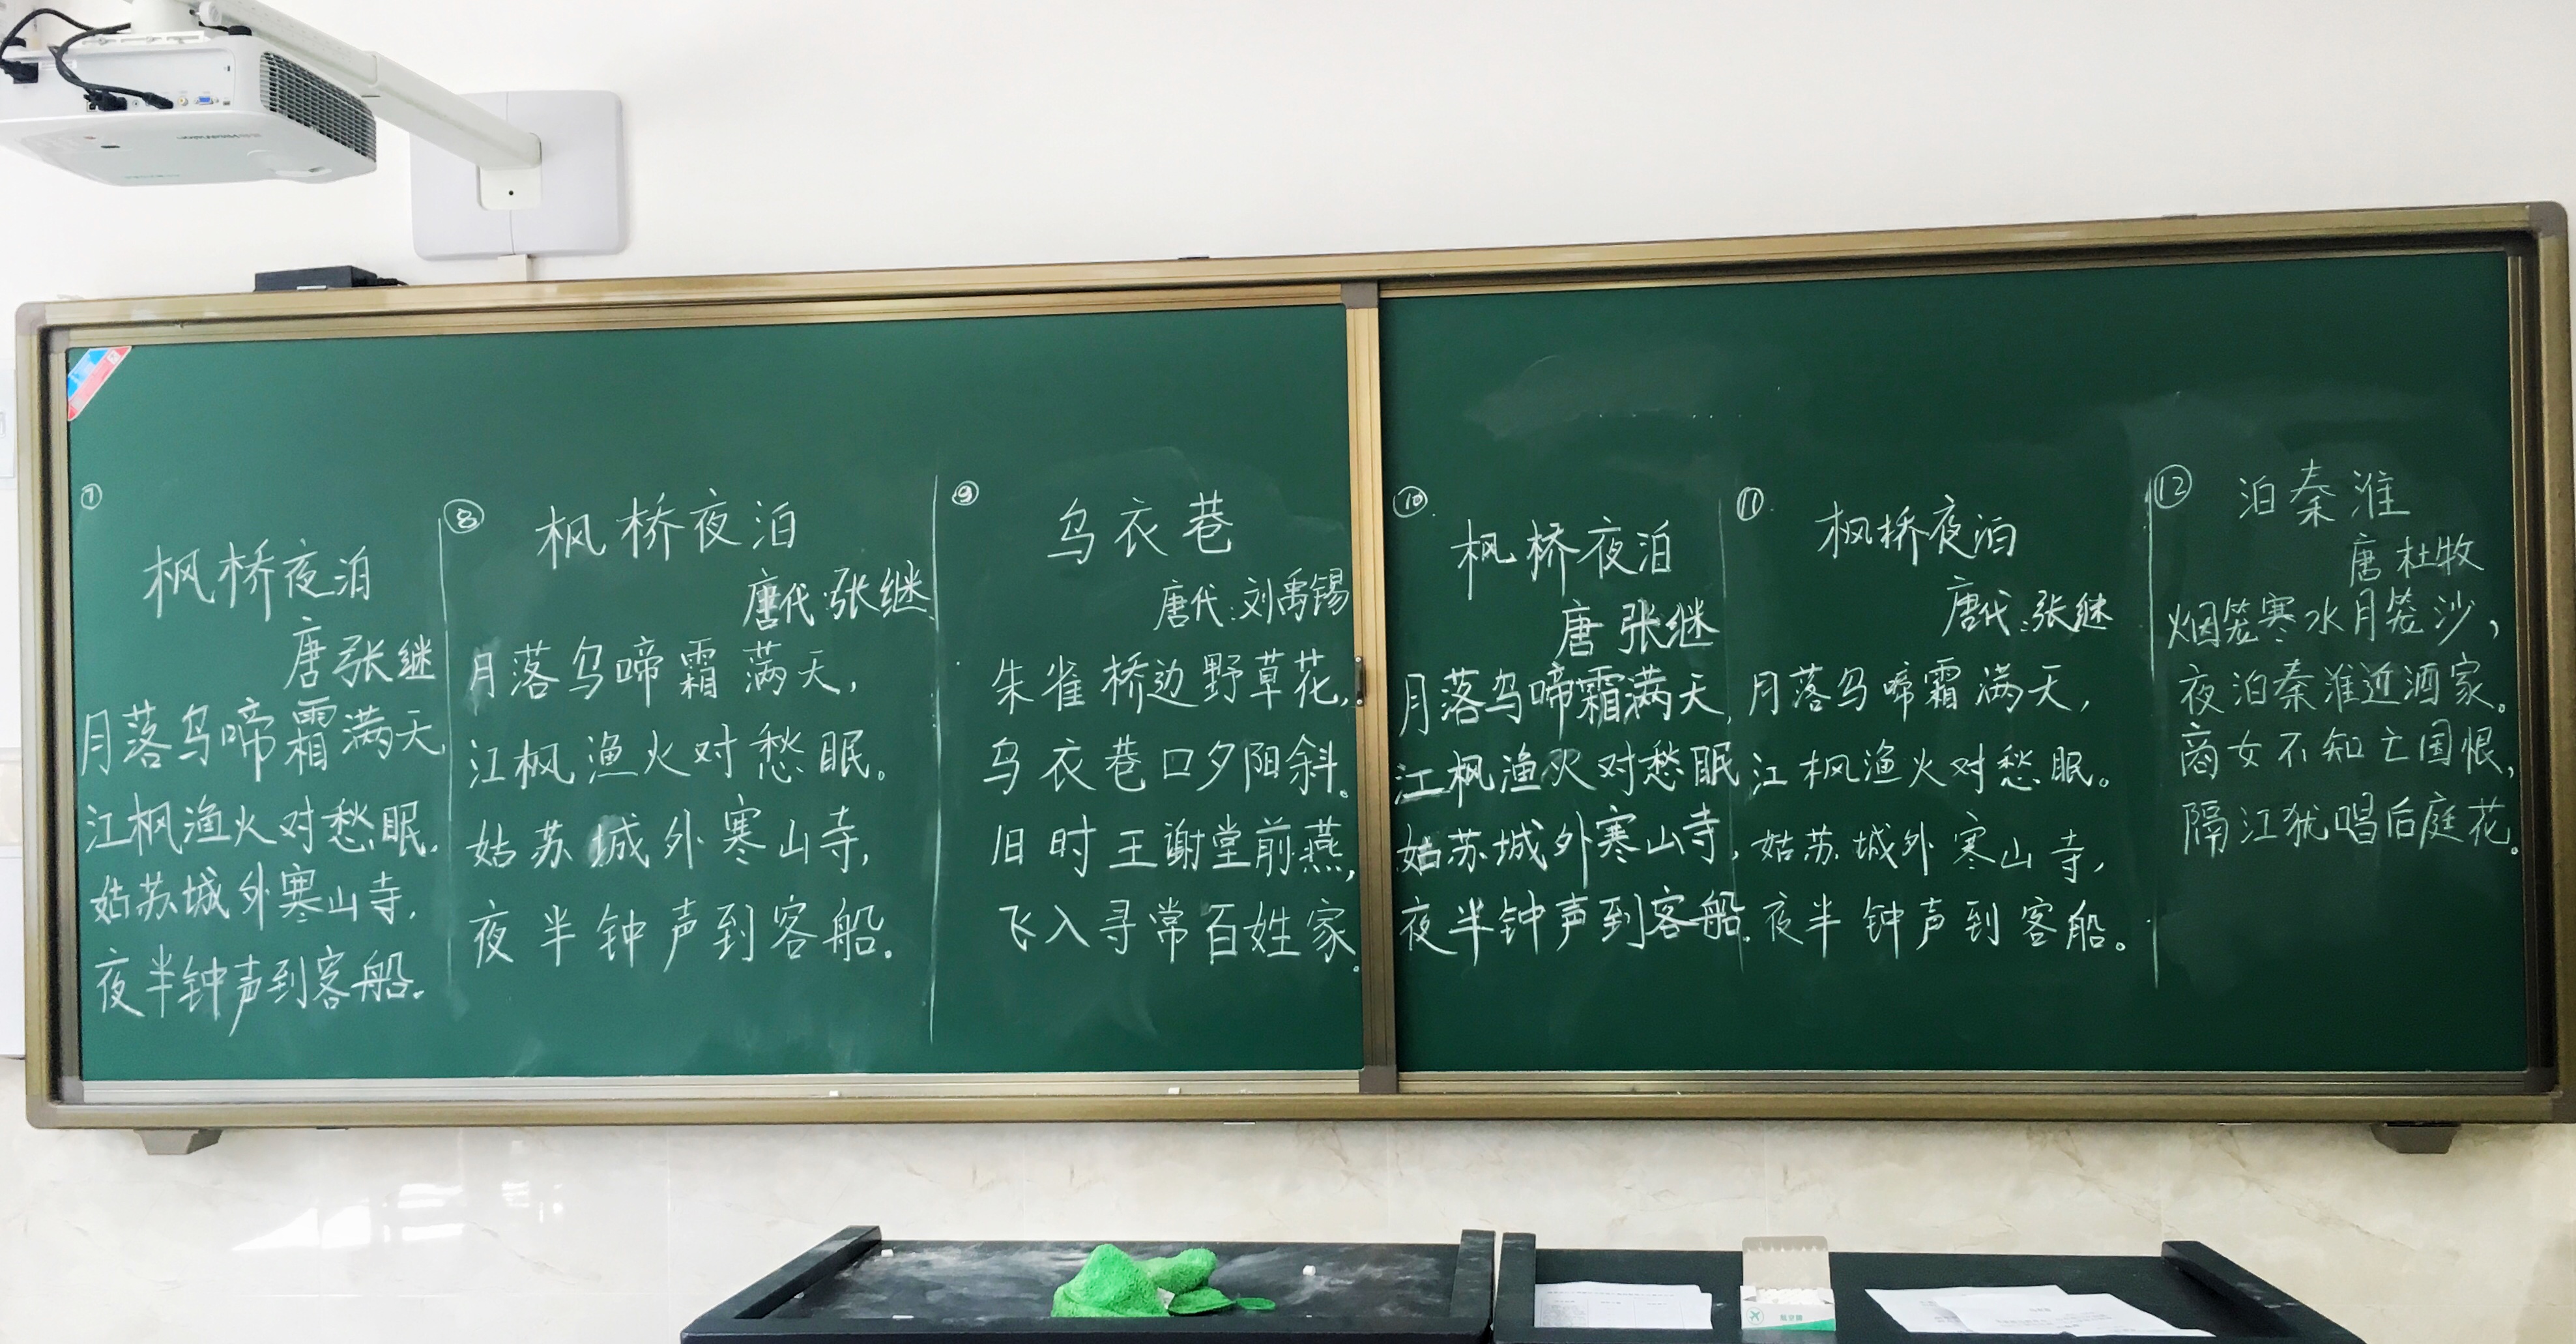 ⑦
枫桥夜泊
唐 张继
月落乌啼霜满天,
江枫渔火对愁眠.
姑苏城外寒山寺,
夜半钟声到客船.
⑧
枫桥夜泊
唐代:张继
月落乌啼霜满天,
江枫渔火对愁眠。
姑苏城外寒山寺,
夜半钟声到客船.
⑨
乌衣巷
唐代:刘禹锡
朱雀桥边野草花,
乌衣巷口夕阳斜。
旧时王谢堂前燕,
飞入寻常百姓家。
⑩
枫桥夜泊
唐 张继
月落乌啼霜满天,
江枫渔火对愁眠
姑苏城外寒山寺,
夜半钟声到客船.
⑪
枫桥夜泊
唐代:张继
月落乌啼霜满天,
江枫渔火对愁眠。
姑苏城外寒山寺,
夜半钟声到客船。
⑫
泊秦淮
唐 杜牧
烟笼寒水月笼沙,
夜泊秦淮近酒家。
商女不知亡国恨,
隔江犹唱后庭花。